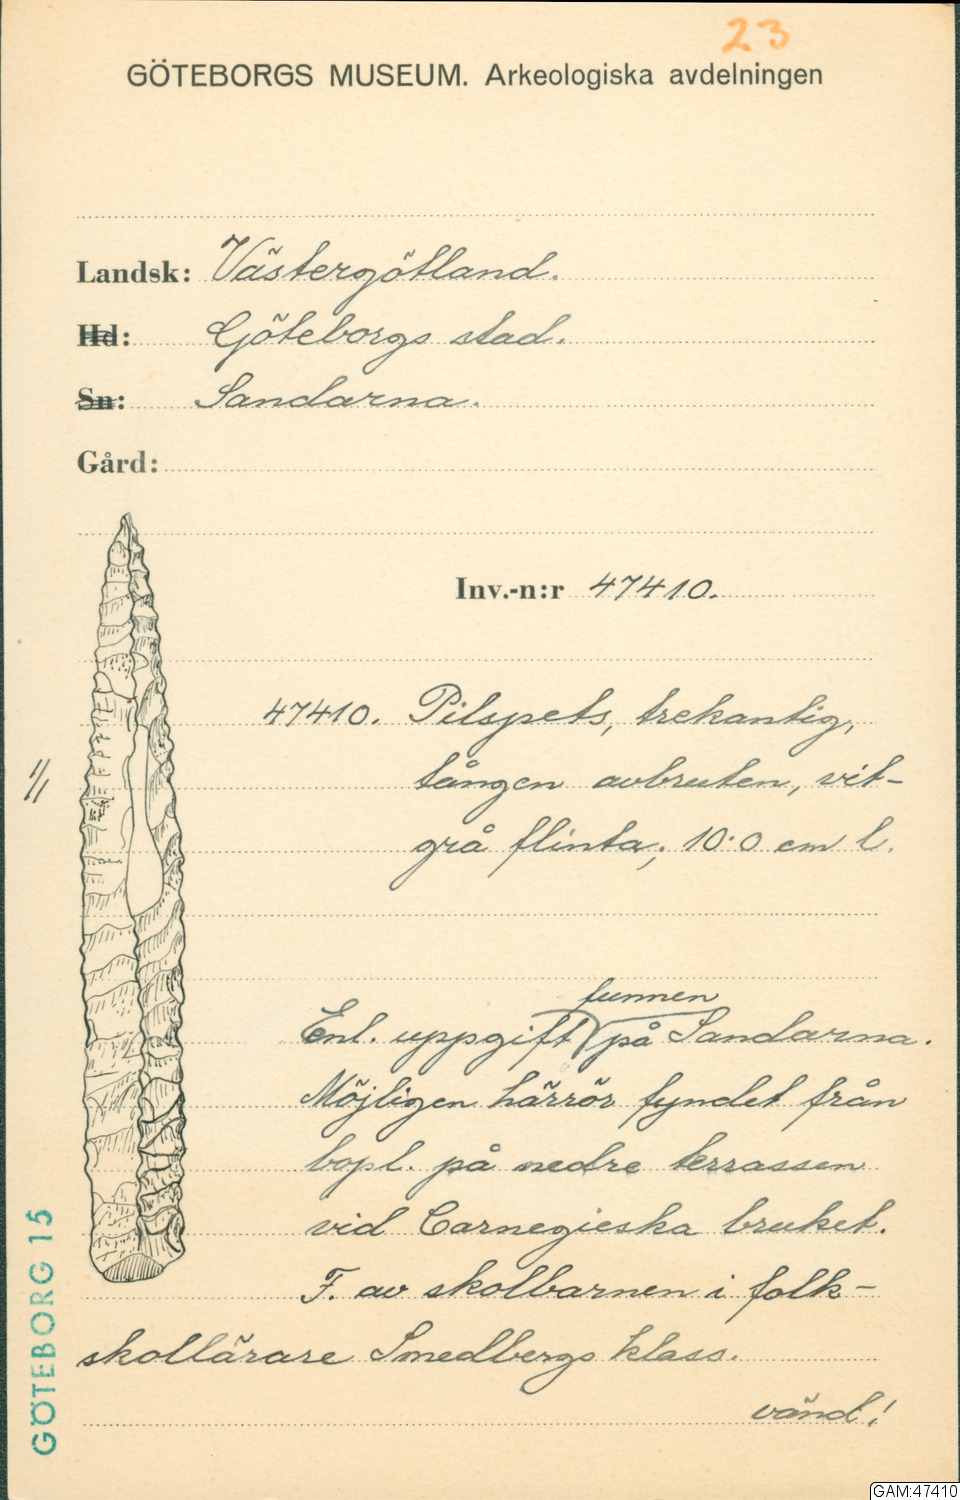 23
GÖTEBORGS MUSEUM. Arkeologiska avdelningen
Landsk: Västergötland.
Hd: Göteborgs stad.
Sn: Sandarna.
Gård:
Inv.-n:r 47410.
47410. Pilspets, trekantig,
tången avbruten, vit-
grå flinta; 10.0 cm l.
1/1
funnen
Enl. uppgift på Sandarna.
Möjligen härrör fyndet från
bopl. på nedre terrassen
vid Carnegieska bruket.
F. av skolbarnen i folk-
skollärare Smedbergs klass.
vänd!
GÖTEBORG 15
GAM:47410